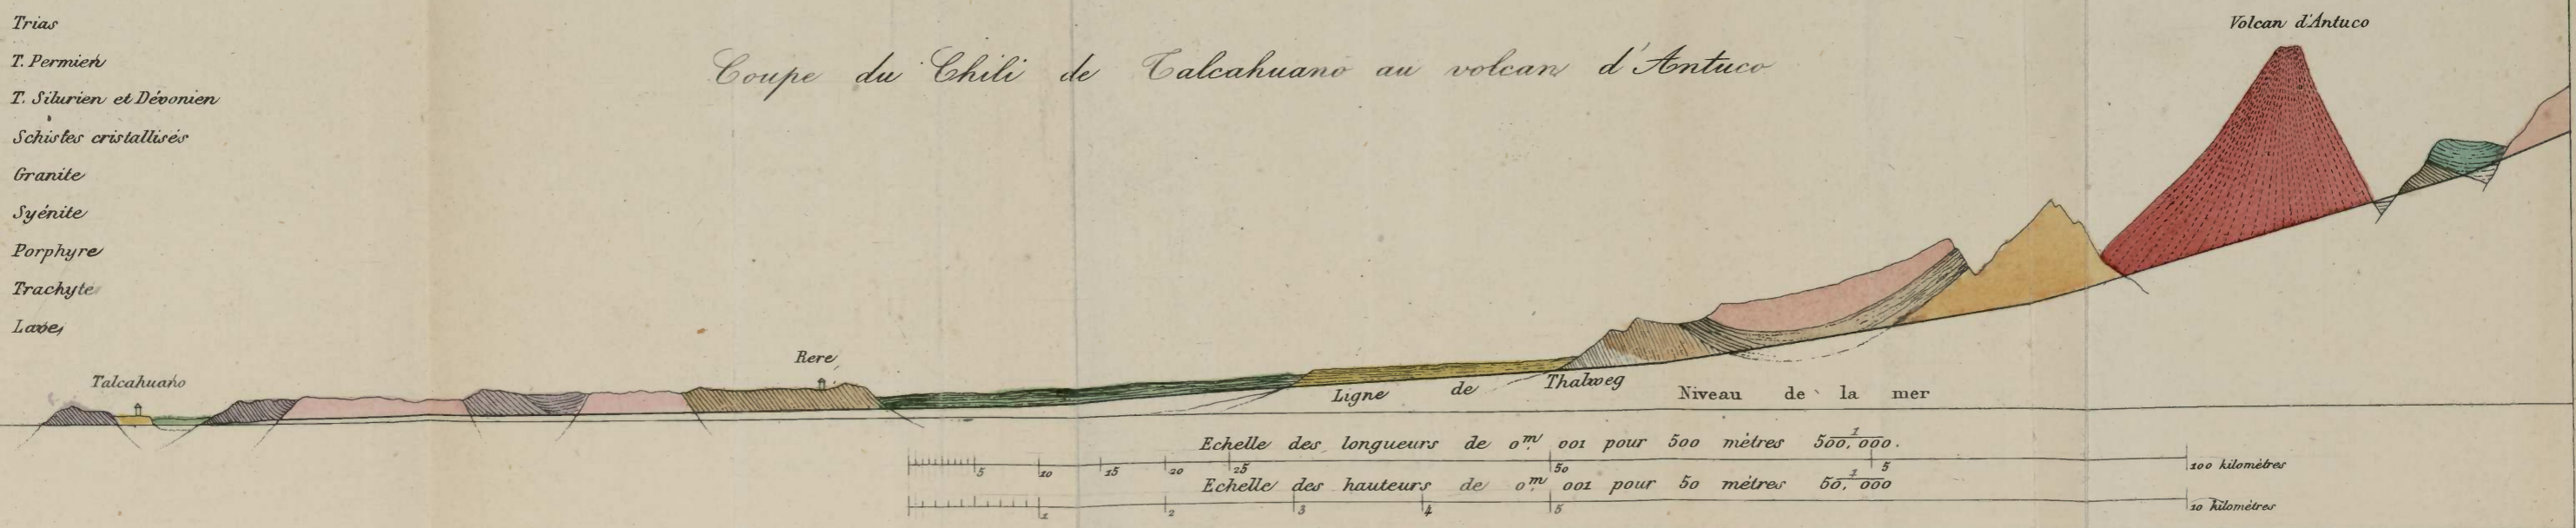 Trias
T. Permien
T. Silurien et Dévonien
Schistes cristallisés
Granite
Syénite
Porphyre
Trachyte
Lave
Coupe du Chili de Talcahuano au volcan d'Antuco
Volcan d'Antuco
Talcahuano
Rere
Ligne de Thalweg
Niveau de la mer
Echelle des longueurs de 0.m 001 pour 500 mètres 1/500,000.
5 10 15 20 25 50 5 100 kilomètres
Echelle des hauteurs de 0.m 001 pour 50 mètres 1/50,000
1 2 3 4 5 10 kilomètres